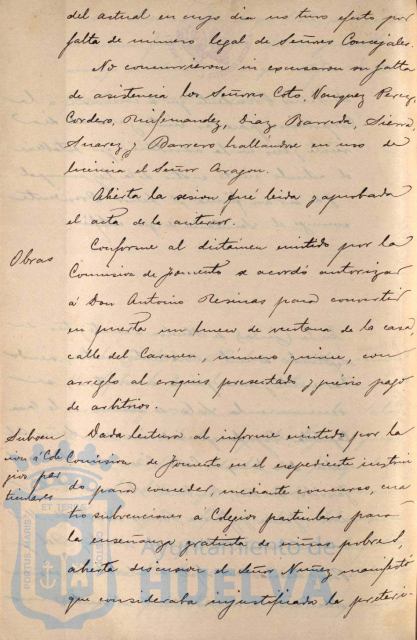 del actual en cuyo dia no tuvo efecto por
falta de número legal de Señores Concejales.
No concurrieron ni excusaron su falta
de asistencia los Señores Coto, Vazquez Perez,
Cordero, Díaz Barreda, Sierra
Suarez y Barrero hallándose en uso de
licencia el Señor Aragon.
Abierta la sesion fué leida y aprobada
el acta de la anterior.
Obras
Conforme al dictámen emitido por la
Comision de Fomento se acordó autorizar
á Don Antonio Resinas para convertir
en puerta un hueco de ventana de la casa,
calle del Carmen, número quince, con
arreglo al croquis presentado y prévio pago
de arbitrios.
Subven
ciones á Cole
gios par
ticulares
Dada lectura al informe emitido por la
Comision de Fomento en el expediente instrui
do para conceder, mediante concurso, cua
tro subvenciones á Colegios particulares para
la enseñanza gratuita de niños pobres,
abierta discusion el Señor Nuñez manifestó
que consideraba injustificada la preteri-
PORTUS MARIS ET TERRAE
Ayuntamiento de
HUELVA